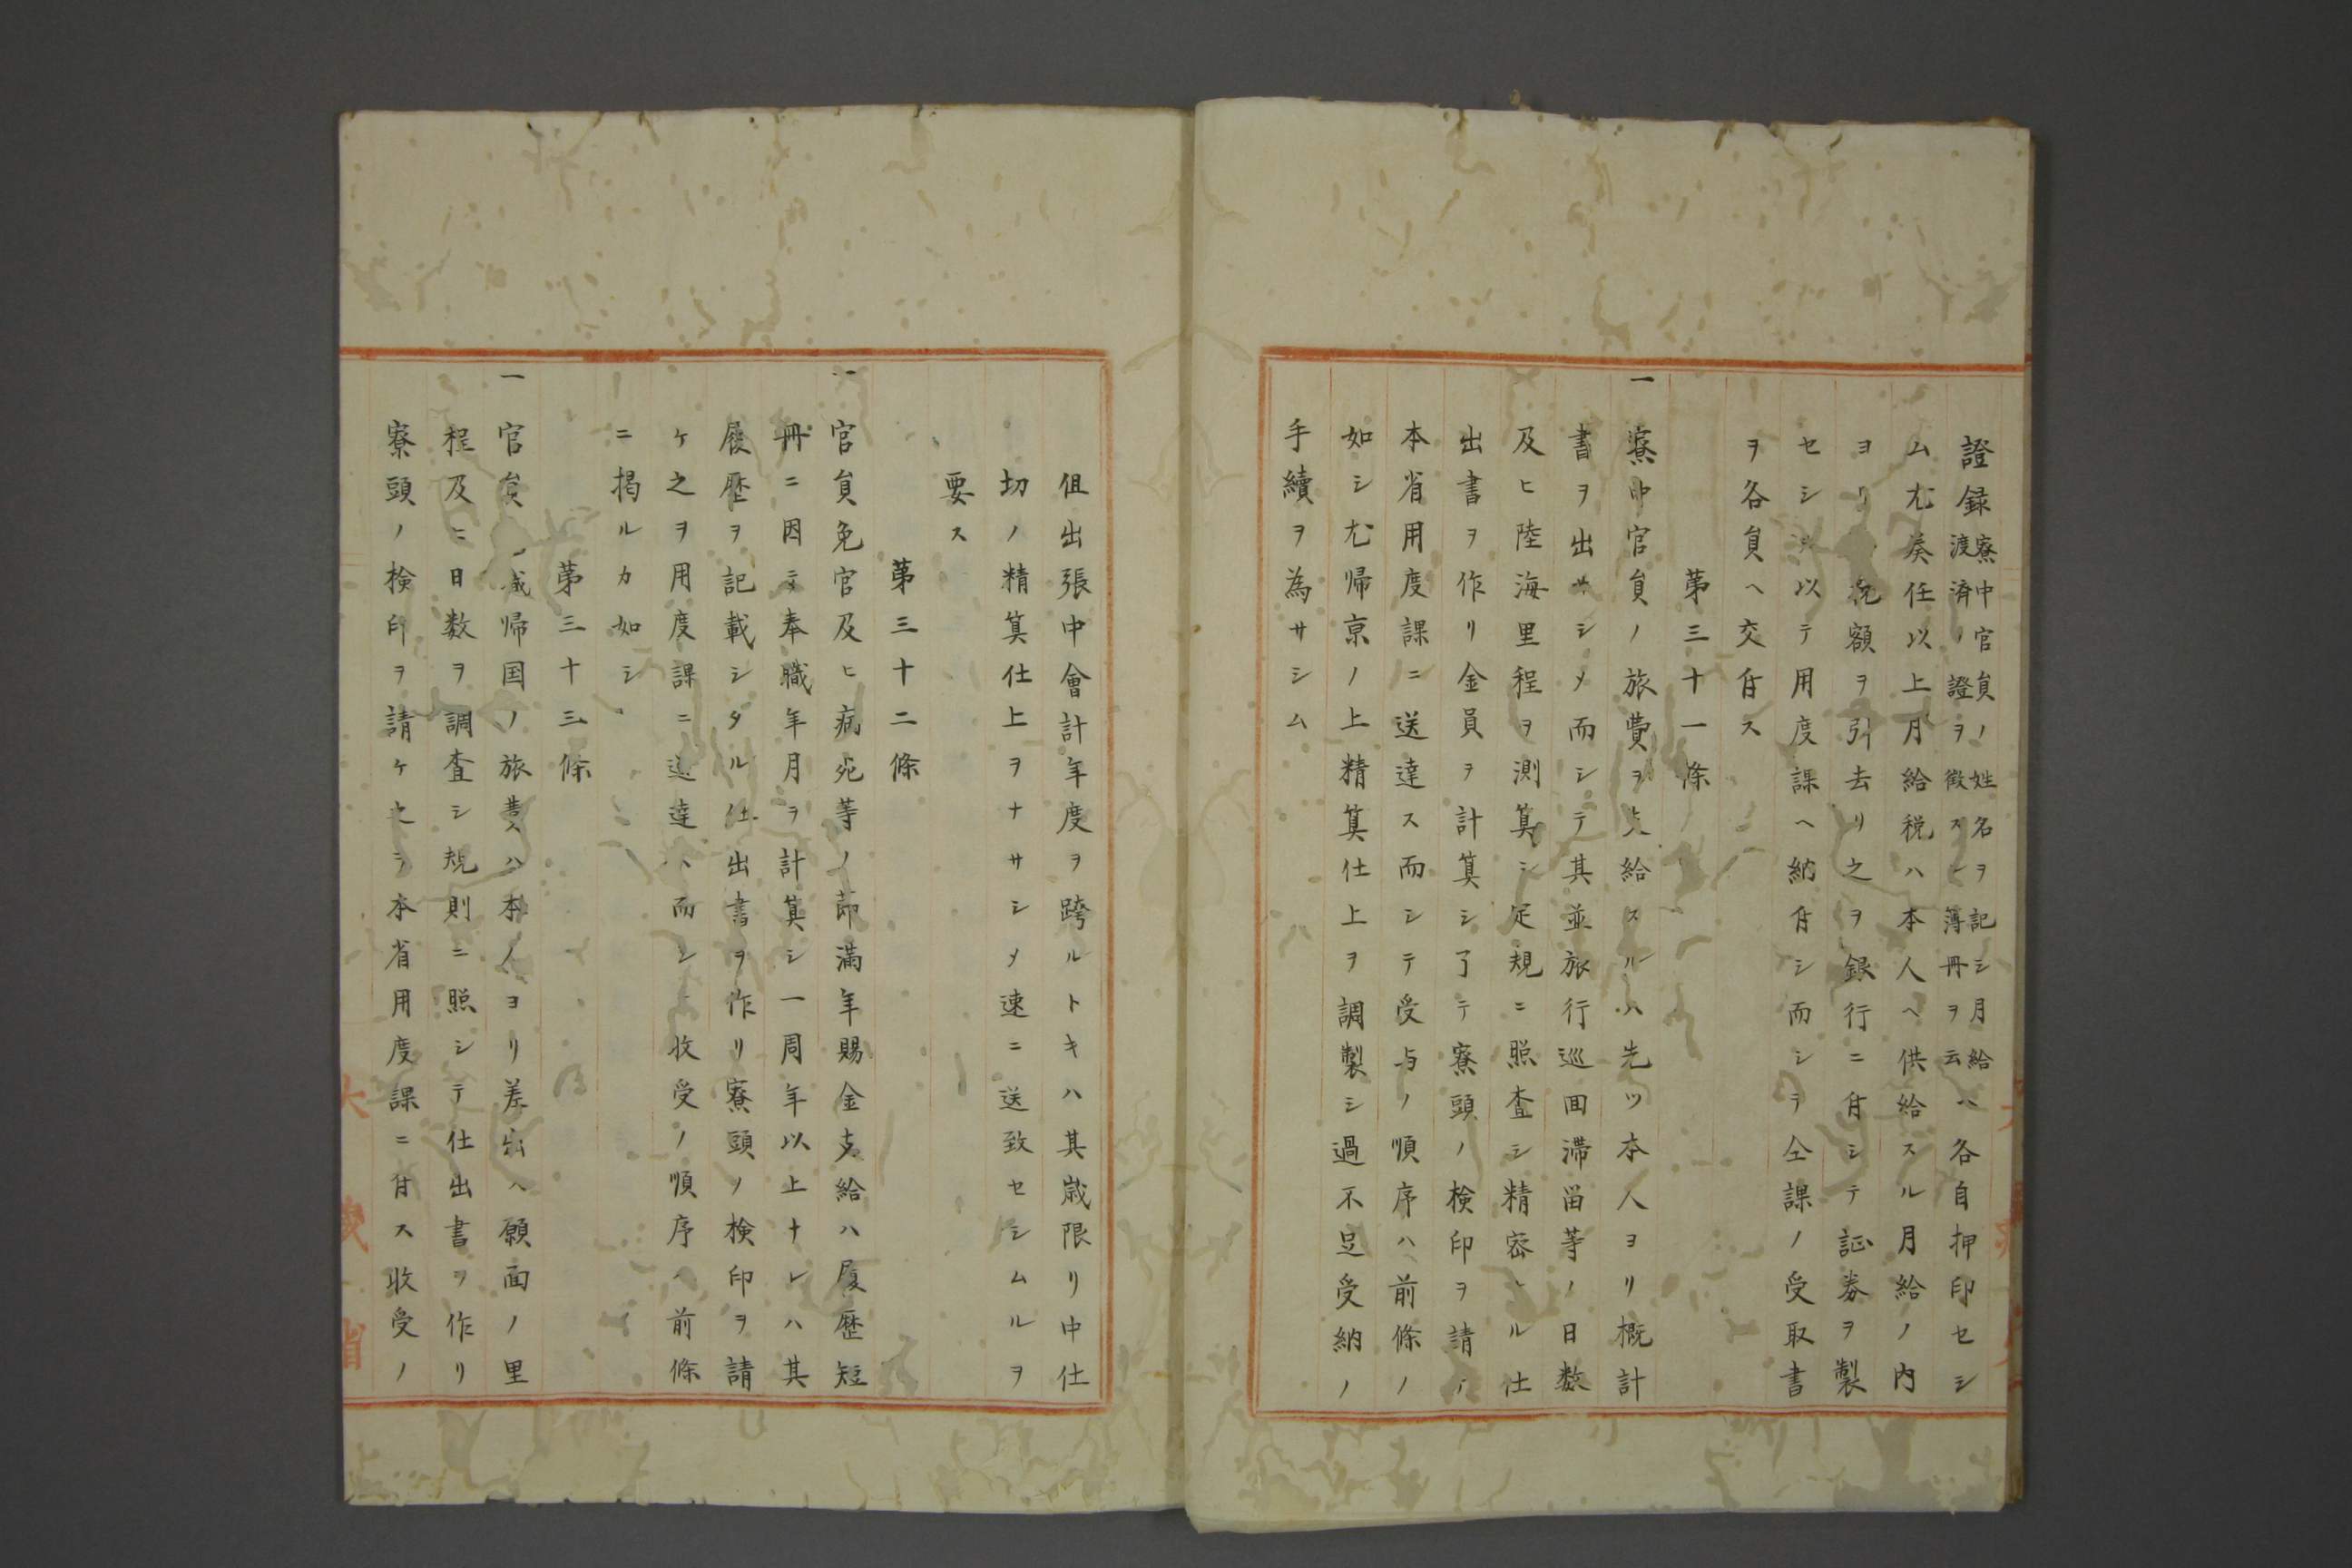 證録寮中官員ノ姓名ヲ記シ月給渡済ノ證ヲ徴スル簿冊ヲ云ハ各自押印セシ
ム尤奏任以上月給税ハ本人ヘ供給スル月給ノ内
ヨリ税額ヲ引去リ之ヲ銀行ニ付シテ証券ヲ製
セシ以テ用度課ヘ納付シ而シテ仝課ノ受取書
ヲ各員ヘ交付ス
第三十一條
一寮中官員ノ旅費ヲ支給スルハ先ツ本人ヨリ概計
書ヲ出サシメ而シテ其並旅行巡回滞留等ノ日数
及ヒ陸海里程ヲ測算シ定規ニ照査シ精密ナル仕
出書ヲ作リ金員ヲ計算シ了テ寮頭ノ検印ヲ請ヒ
本省用度課ニ送達ス而シテ受与ノ順序ハ前條ノ
如シ尤帰京ノ上精算仕上ヲ調製シ過不足受納ノ
手續ヲ為サシム
但出張中會計年度ヲ跨ルトキハ其歳限リ中仕
切ノ精算仕上ヲナサシメ速ニ送致セシムルヲ
要ス
第三十二條
一官員免官及ヒ病死等ノ節満年賜金支給ハ履歴短
冊ニ因テ奉職年月ヲ計算シ一周年以上ナレハ其
履歴ヲ記載シタル仕出書ヲ作リ寮頭ノ検印ヲ請
ケ之ヲ用度課ニ送達ス而シテ收受ノ順序ハ前條
ニ掲ルカ如シ
第三十三條
一官員帰国ノ旅費ハ本人ヨリ差出ス願面ノ里
程及ニ日数ヲ調査シ規則ニ照シテ仕出書ヲ作リ
寮頭ノ検印ヲ請ケ之ヲ本省用度課ニ付ス收受ノ
大蔵省